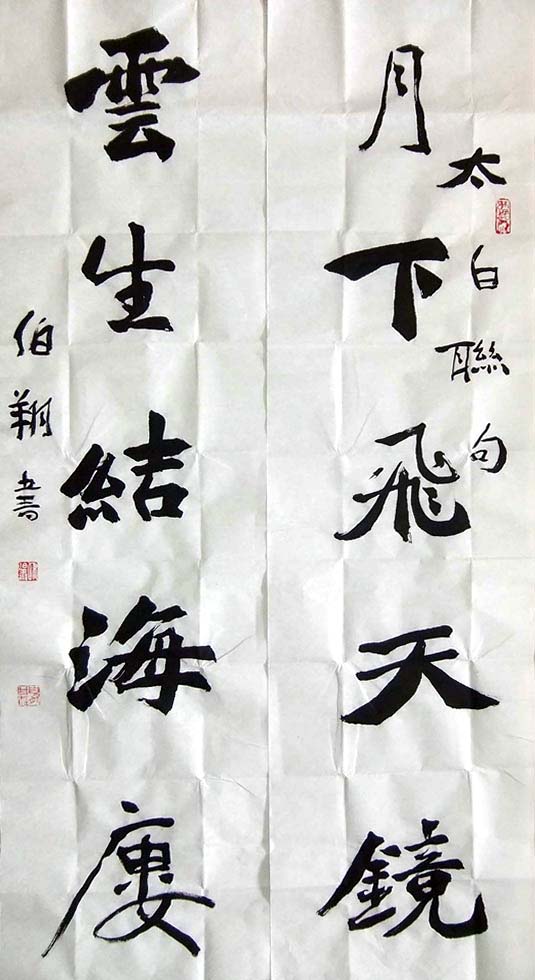 太白聯句
月下飛天鏡
雲生結海廔
伯翔書